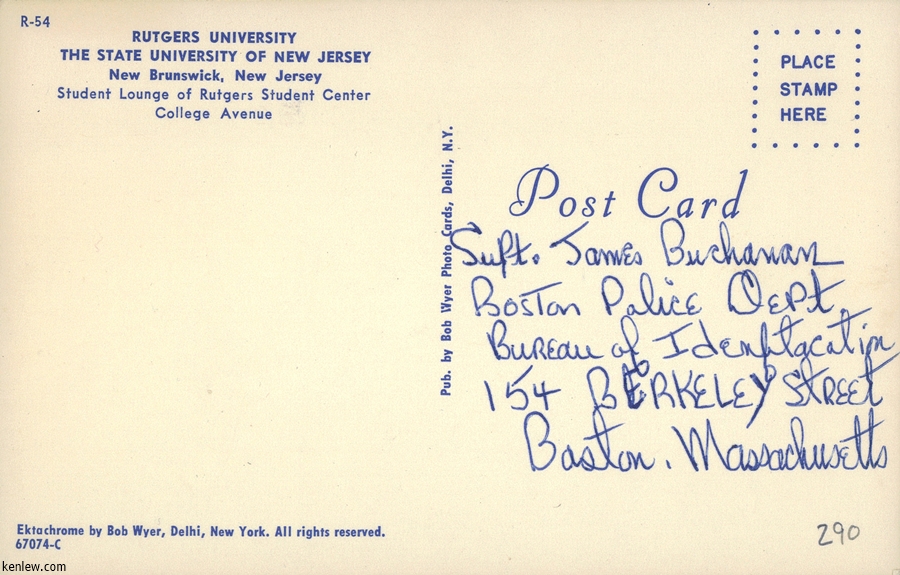 R-54
RUTGERS UNIVERSITY
THE STATE UNIVERSITY OF NEW JERSEY
New Brunswick, New Jersey
Student Lounge of Rutgers Student Center
College Avenue
PLACE
STAMP
HERE
Pub. by Bob Wyer Photo Cards, Delhi, N.Y.
Post Card
Supt. James Buchanan
Boston Police Dept.
Bureau of Idenftacatin
154 BERKELEY STREET
Boston. Massachusetts
Ektachrome by Bob Wyer, Delhi, New York. All rights reserved.
67074-C
290
kenlew.com